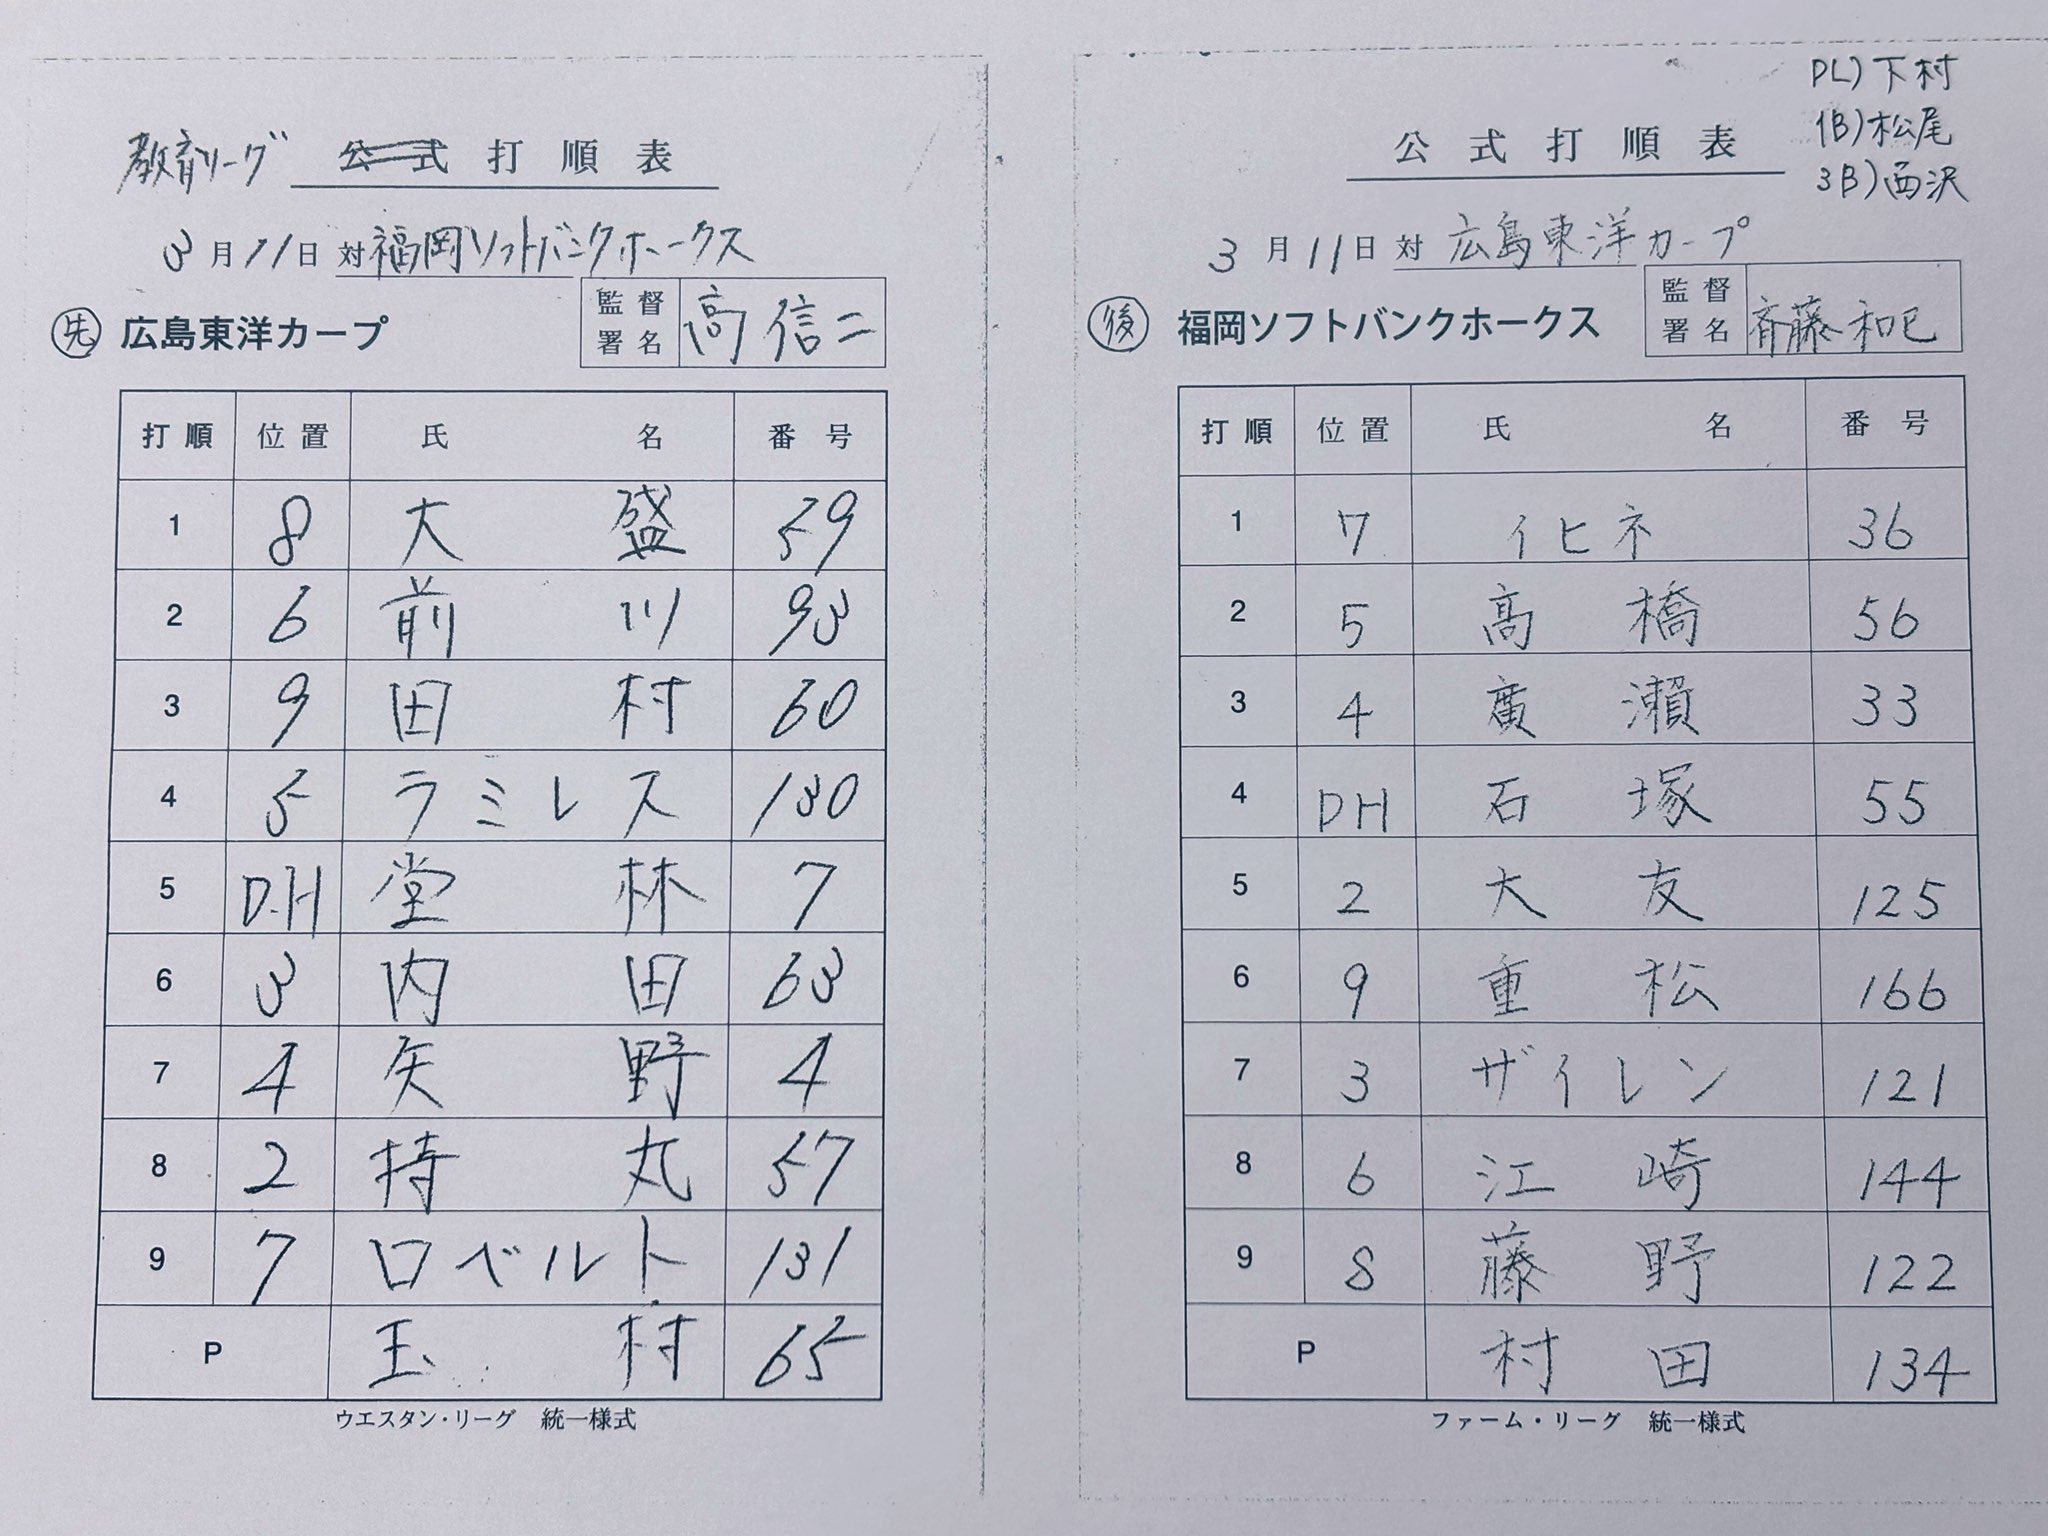 教育リーグ 公式打順表
3月11日対福岡ソフトバンクホークス
先 広島東洋カープ 監督署名 高信二
打順 位置 氏名 番号
1 8 大盛 59
2 6 前川 93
3 9 田村 60
4 5 ラミレス 130
5 D.H 堂林 7
6 3 内田 63
7 4 矢野 4
8 2 持丸 57
9 7 ロベルト 131
P 玉村 65
ウエスタン・リーグ 統一様式
PL)下村
1B)松尾
3B)西沢
公式打順表
3月11日対広島東洋カープ
後 福岡ソフトバンクホークス 監督署名 斉藤和巳
打順 位置 氏名 番号
1 7 イヒネ 36
2 5 高橋 56
3 4 廣瀨 33
4 DH 石塚 55
5 2 大友 125
6 9 重松 166
7 3 ザイレン 121
8 6 江崎 144
9 8 藤野 122
P 村田 134
ファーム・リーグ 統一様式